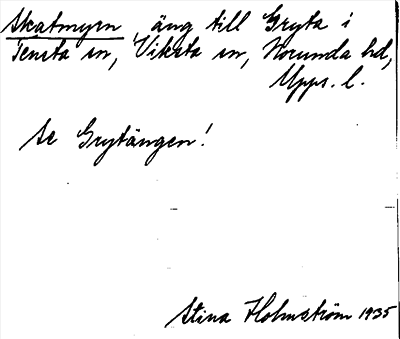 Skatmyrn, äng till Gryta i
Tensta sn, Viksta sn, Norunda hd,
Upps. l.
Se Grytängen!
Stina Holmström 1935